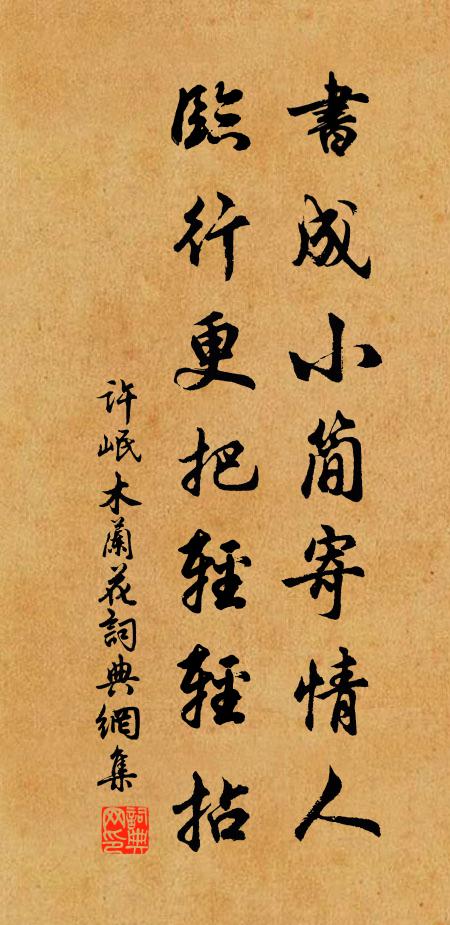 書成小簡寄情人
臨行更把輕輕拈
許岷木蘭花詞典網集
詞典网印